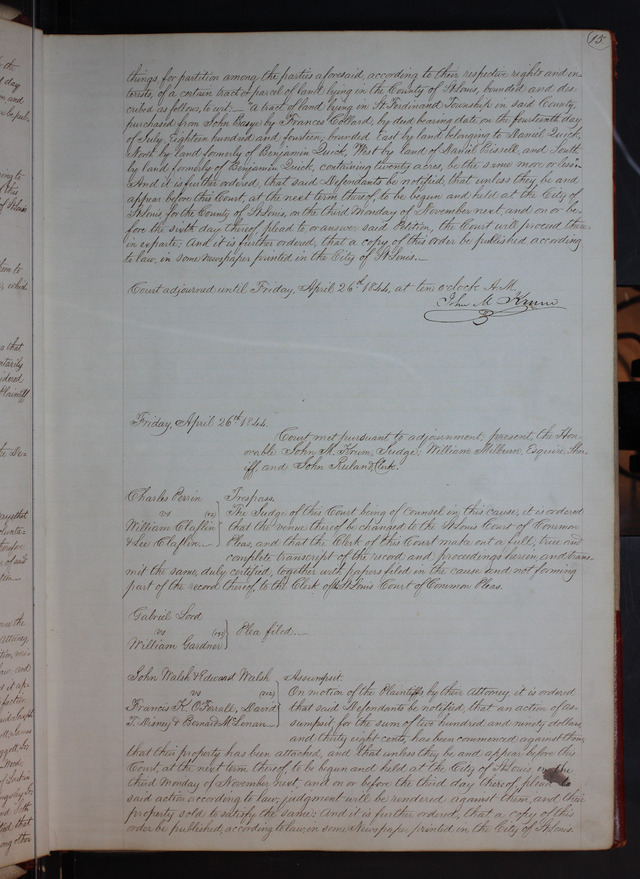 15
things, for partition among the parties aforesaid, according to their respective rights and in-
terests, of a certain tract or parcel of land lying in the County of St Louis, bounded and des-
cribed as follows, to wit:— a tract of land lying in St Ferdinand Township in said County,
purchased from John Basye by Frances Collard, by deed bearing date on the fourteenth day
of July, Eighteen hundred and fourteen; bounded East by land belonging to Daniel Quick,
North by land formerly of Benjamin Quick, West by land of Daniel Bissell, and South
by land formerly of Benjamin Quick, containing twenty acres, be the same more or less:
And it is further ordered, that said Defendants be notified, that unless they be and
appear before this Court, at the next term thereof, to be begun and held at the City of
St Louis, for the County of St Louis, on the third Monday of November next, and on or be-
fore the sixth day thereof, plead to or answer said Petition, the Court will proceed there-
in exparte; And it is further ordered, that a copy of this order be published according
to law, in some newspaper printed in the City of St Louis.
Court adjourned until Friday, April 26th 1844, at ten o'clock A.M.
John M. Krum
Friday, April 26th 1844.
Court met pursuant to adjournment, present, the Hon-
orable John M. Krum, Judge; William Milburn, Esquire, Sher-
iff; and John Ruland, Clerk.
Charles Perrin
vs
William Claflin
& Lee Claflin
Trespass.
The Judge of this Court being of counsel in this cause, it is ordered
that the venue thereof be changed to the St Louis Court of Common
Pleas, and that the Clerk of this Court make out a full, true and
complete transcript of the record and proceedings herein, and trans-
mit the same, duly certified, together with papers filed in the cause and not forming
part of the record thereof, to the Clerk of St Louis Court of Common Pleas.
Gabriel Lord
vs
William Gardner
Plea filed.
John Walsh & Edward Walsh
vs
Francis K. O'Ferrall, David
T. Disney & Bernard McLenan
Assumpsit.
On motion of the Plaintiffs by their Attorney it is ordered
that said Defendants be notified, that an action of as-
sumpsit, for the sum of two hundred and ninety dollars,
and thirty eight cents, has been commenced against them,
that their property has been attached, and that unless they be and appear before this
Court, at the next term thereof, to be begun and held at the City of St Louis on the
third Monday of November next, and on or before the third day thereof, plead to
said action according to law, judgment will be rendered against them, and their
property sold to satisfy the same: And it is further ordered, that a copy of this
order be published, according to law, in some Newspaper printed in the City of St Louis.